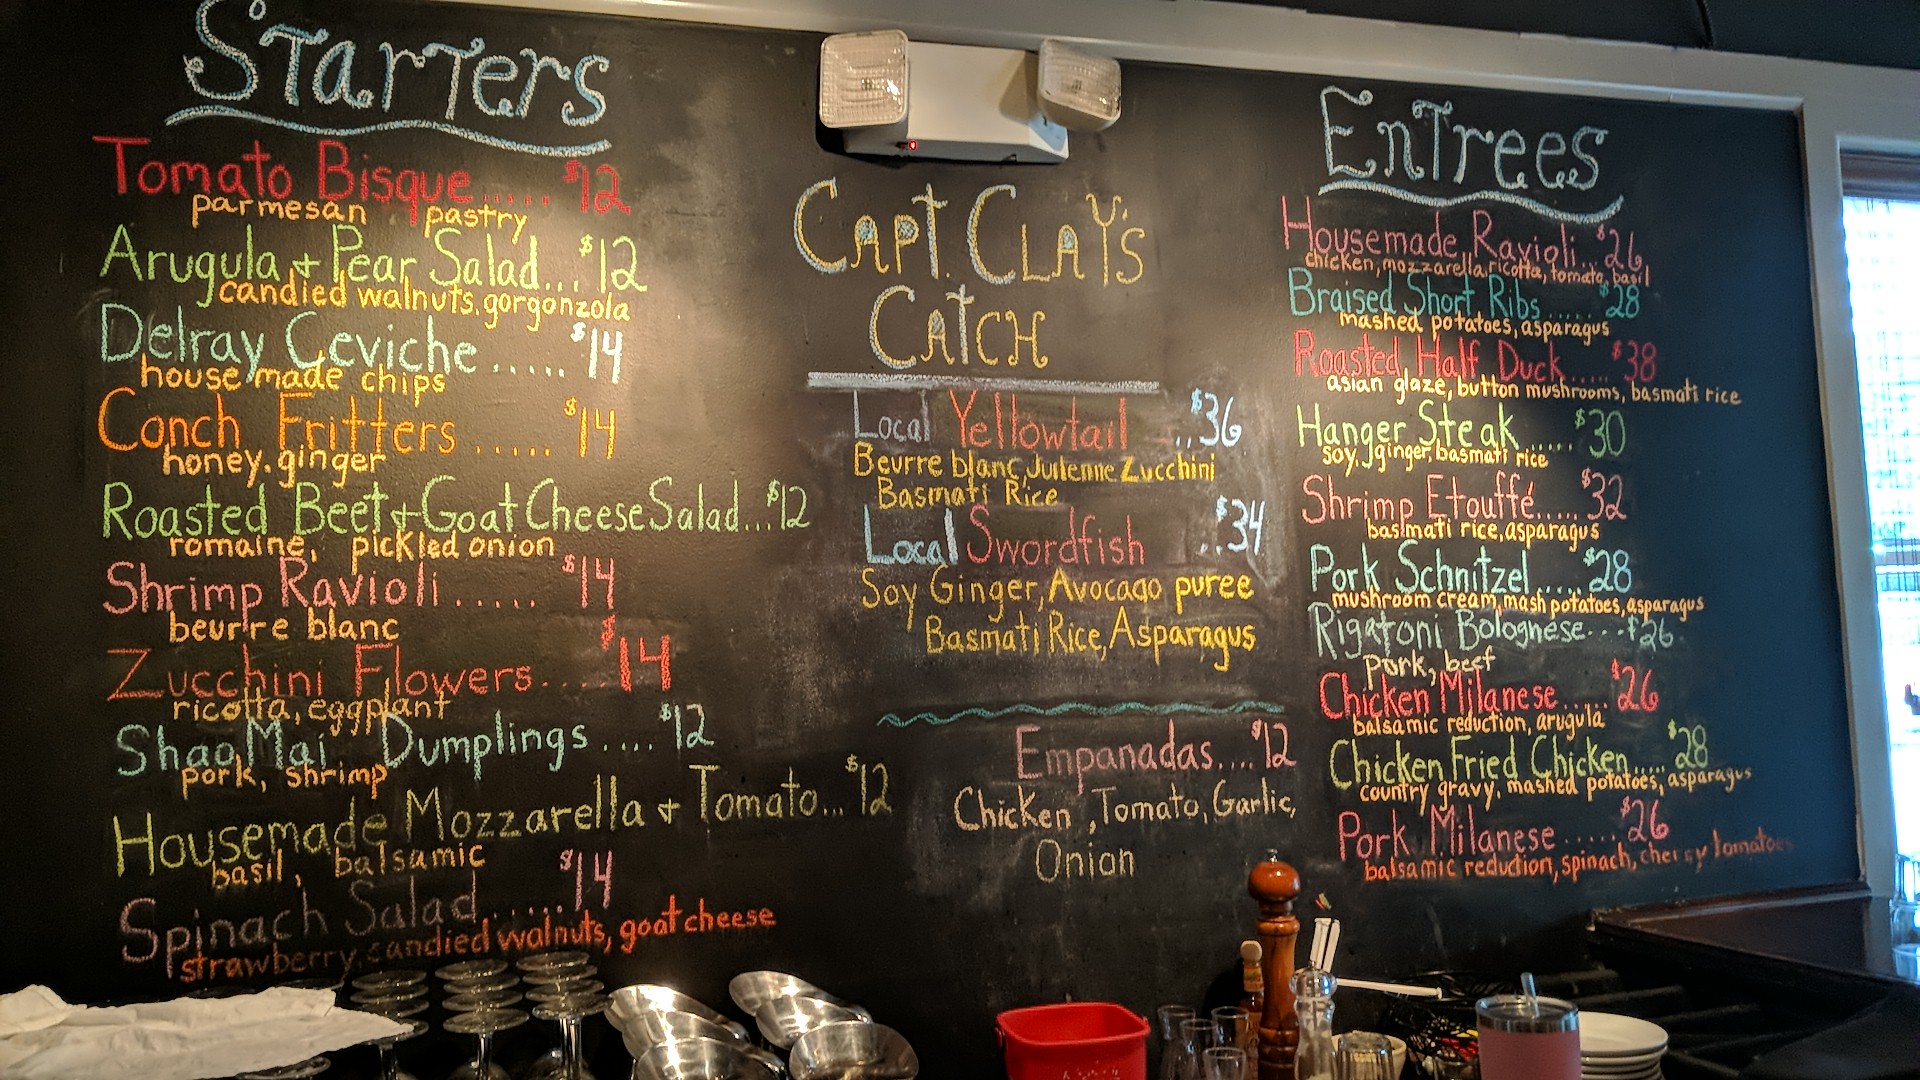 Starters
Tomato Bisque..... $12
parmesan pastry
Arugula + Pear Salad... $12
candied walnuts, gorgonzola
Delray Ceviche ..... $14
house made chips
Conch Fritters ..... $14
honey, ginger
Roasted Beet + Goat Cheese Salad... $12
romaine, pickled onion
Shrimp Ravioli ..... $14
beurre blanc
Zucchini Flowers.... $14
ricotta, eggplant
Shao Mai Dumplings .... $12
pork, shrimp
Housemade Mozzarella + Tomato... $12
basil, balsamic
Spinach Salad...... $14
strawberry, candied walnuts, goat cheese
Capt. Clay's
Catch
Local Yellowtail ...$36
Beurre blanc, Julienne Zucchini
Basmati Rice
Local Swordfish ..$34
Soy Ginger, Avocado puree
Basmati Rice, Asparagus
Empanadas.... $12
Chicken, Tomato, Garlic,
Onion
Entrees
Housemade Ravioli... $26
chicken, mozzarella, ricotta, tomato, basil
Braised Short Ribs ..... $28
mashed potatoes, asparagus
Roasted Half Duck..... $38
asian glaze, button mushrooms, basmati rice
Hanger Steak ..... $30
soy, ginger, basmati rice
Shrimp Etouffé..... $32
basmati rice, asparagus
Pork Schnitzel ..... $28
mushroom cream, mash potatoes, asparagus
Rigatoni Bolognese... $26
pork, beef
Chicken Milanese ..... $26
balsamic reduction, arugula
Chicken Fried Chicken..... $28
country gravy, mashed potatoes, asparagus
Pork Milanese ..... $26
balsamic reduction, spinach, cherry tomatoes